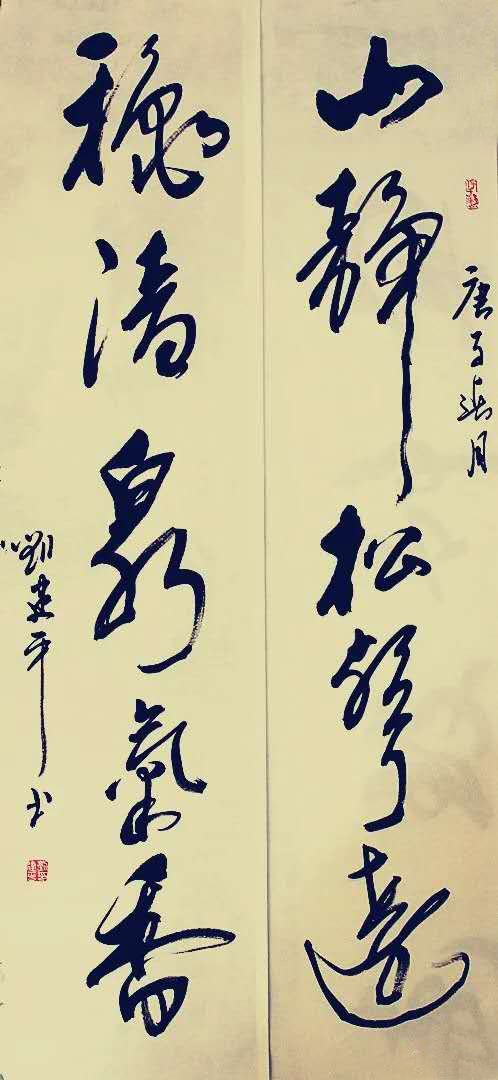 庚子月
山靜松聲遠
穐清泉氣香
劉建平书